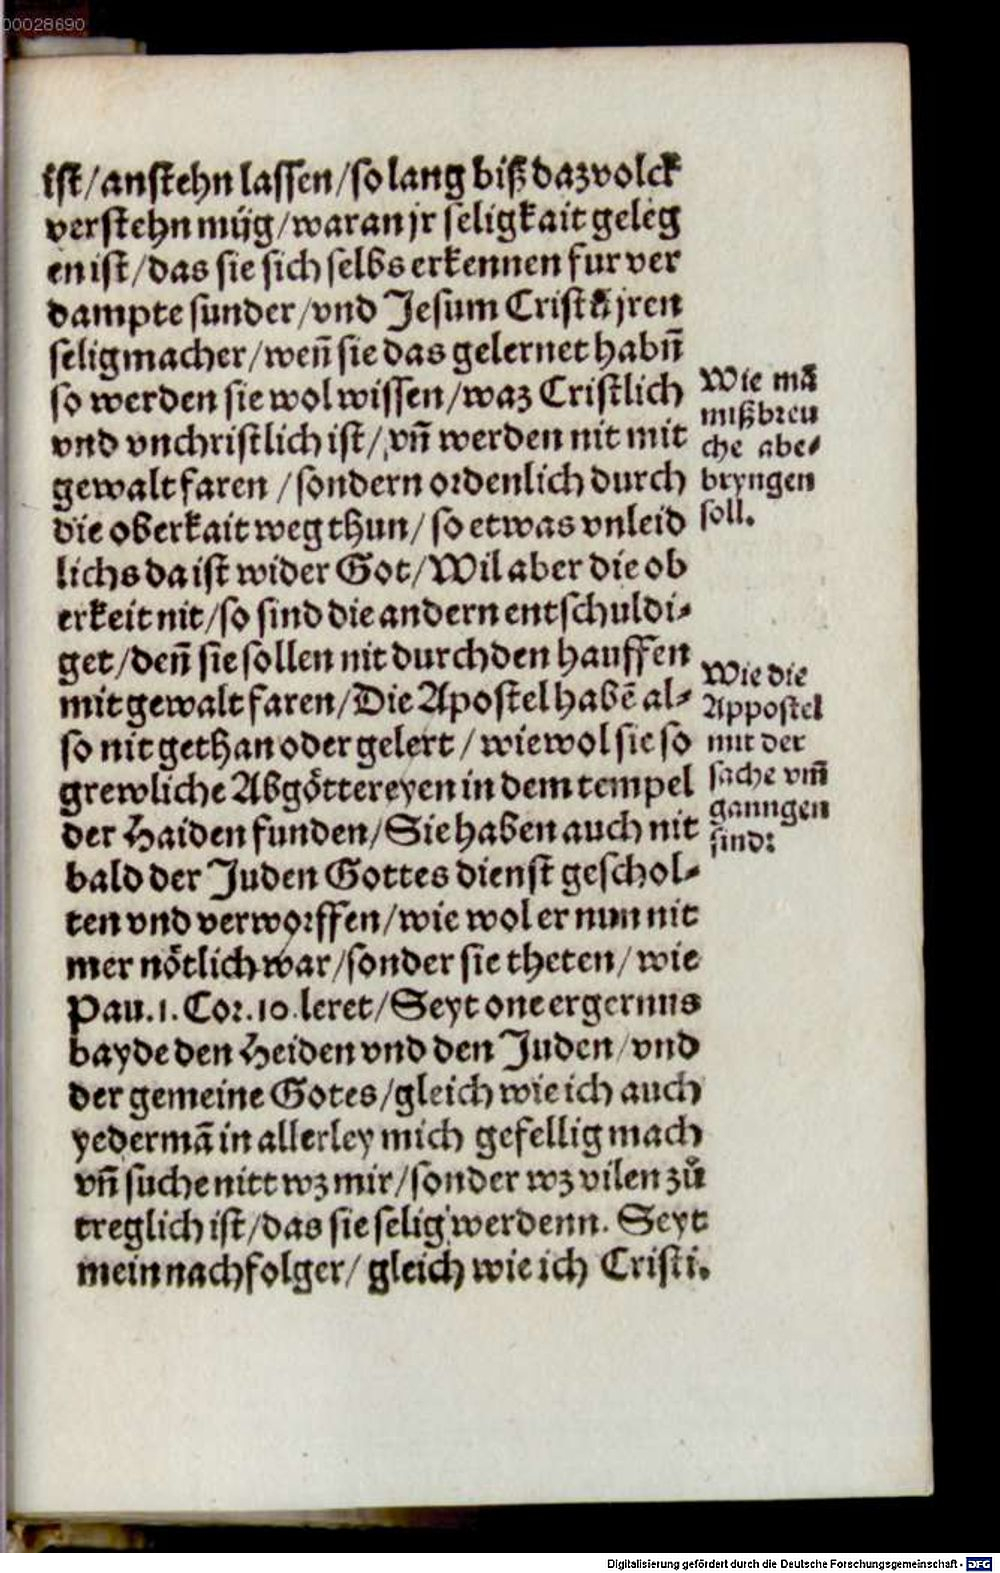 00028690
ist/anstehn lassen/so lang biß daz volck
verstehn müg/waran jr seligkait geleg
en ist/das sie sich selbs erkennen fur ver
dampte sunder/vnd Jesum Cristū jren
seligmacher/weñ sie das gelernet habñ
so werden sie wol wissen/waz Cristlich
vnd vnchristlich ist/vñ werden nit mit
gewalt faren/sondern ordenlich durch
die oberkait weg thun/so etwas vnleid
lichs da ist wider Got/Wil aber die ob
erkeit nit/so sind die andern entschuldi⸗
get/deñ sie sollen nit durch den hauffen
mit gewalt faren/Die Apostel habē al⸗
so nit gethan oder gelert/wiewol sie so
grewliche Abgöttereyen in dem tempel
der Haiden funden/Sie haben auch nit
bald der Juden Gottes dienst geschol⸗
ten vnd verworffen/wie wol er nun nit
mer nötlich war/sonder sie theten/wie
Pau.1.Cor.10.leret/Seyt one ergernus
bayde den Heiden vnd den Juden/vnd
der gemeine Gotes/gleich wie ich auch
yedermā in allerley mich gefellig mach
vñ suche nitt wz mir/sonder wz vilen zů
treglich ist/das sie selig werdenn. Seyt
mein nachfolger/gleich wie ich Cristi.
Wie mā
mißbreu
che abe⸗
bryngen
soll.
Wie die
Appostel
mit der
sache vm̄
ganngen
sind:
Digitalisierung gefördert durch die Deutsche Forschungsgemeinschaft - DFG